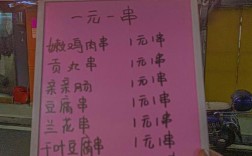 一元一串
嫩鸡肉串 1元1串
贡丸串 1元1串
亲亲肠 1元1串
豆腐串 1元1串
兰花串 1元1串
千叶豆腐串 1元1串